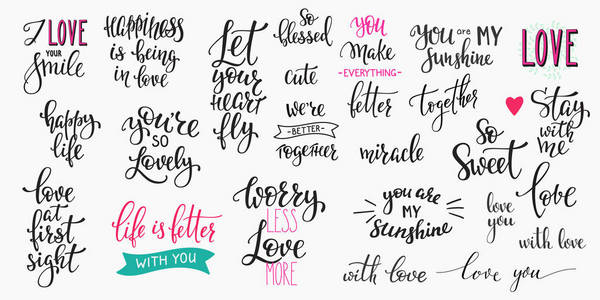 I LOVE
YOUR
Smile
Happiness
is being
in love
Let
your
heart
fly
So
blessed
cute
we're
BETTER
Together
You
make
EVERYTHING
better
miracle
You are MY
Sunshine
together
LOVE
Stay
with
me
happy
life
you're
SO
Lovely
So
Sweet
love
at
first
sight
life is better
WITH YOU
worry
LESS
Love
MORE
you are
MY
Sunshine
love
you
love
with love
with love
love you